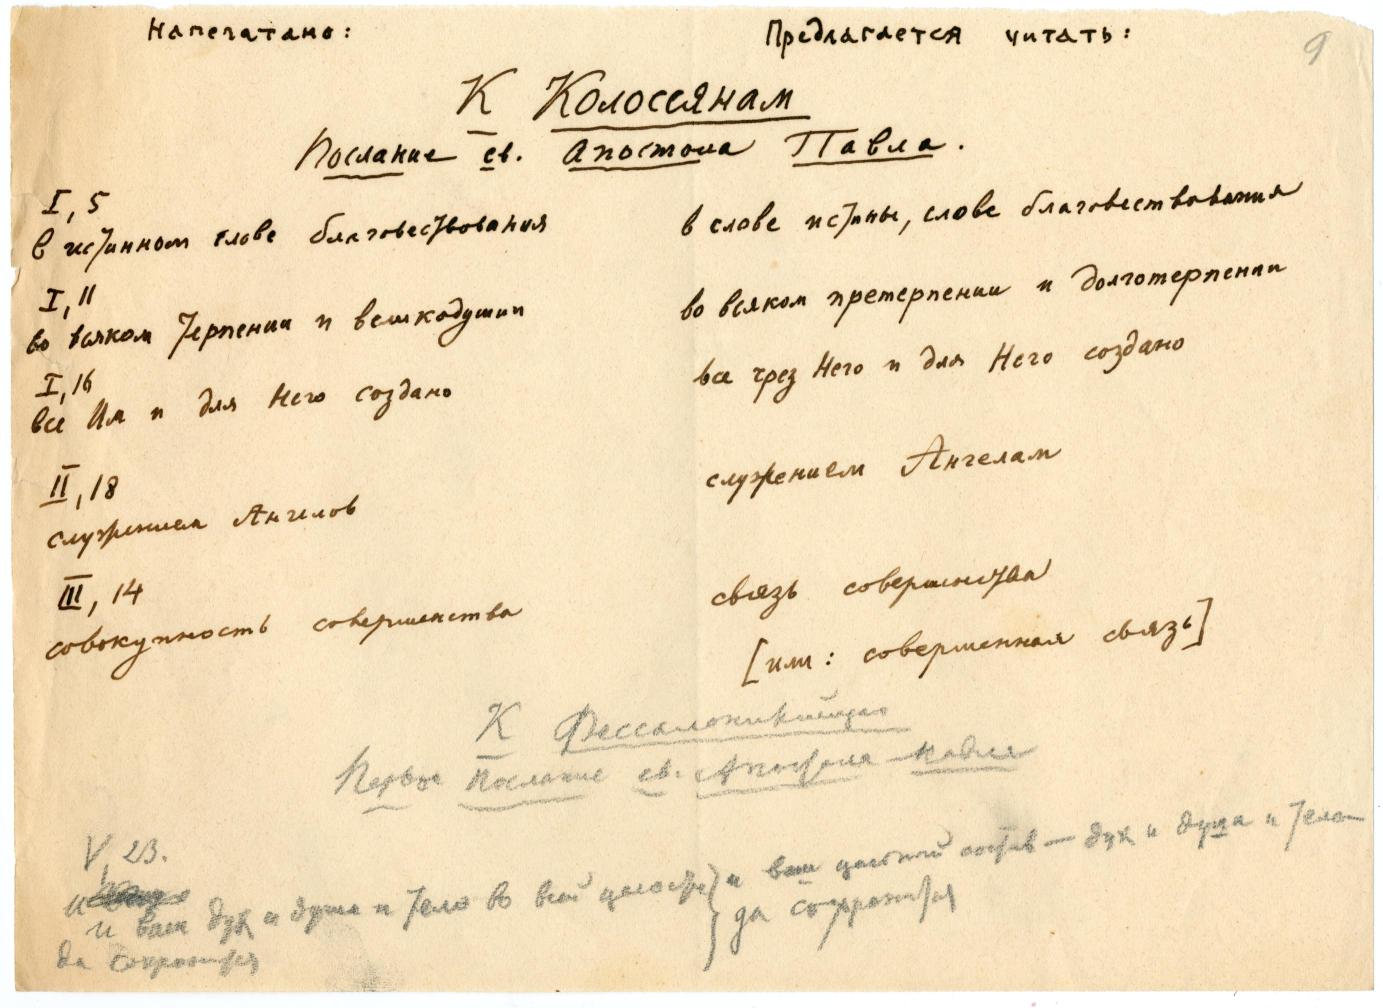 Напечатано: Предлагается читать:
9
К Колоссянам
Послание св. Апостола Павла.
I, 5
в истинном слове благовествования в слове истины, слове благовествования
I, 11
во всяком терпении и великодушии во всяком претерпении и долготерпении
I, 16
все Им и для Него создано все чрез Него и для Него создано
II, 18
служением Ангелов служением Ангелам
III, 14
совокупность совершенства связь совершенства
[или: совершенная связь]
К Фессалоникийцам
Первое Послание св. Апостола Павла
V, 23.
и
и ваш дух и душа и тело во всей целости } и ваш цельный состав — дух и душа и тело
да сохранится да сохранится